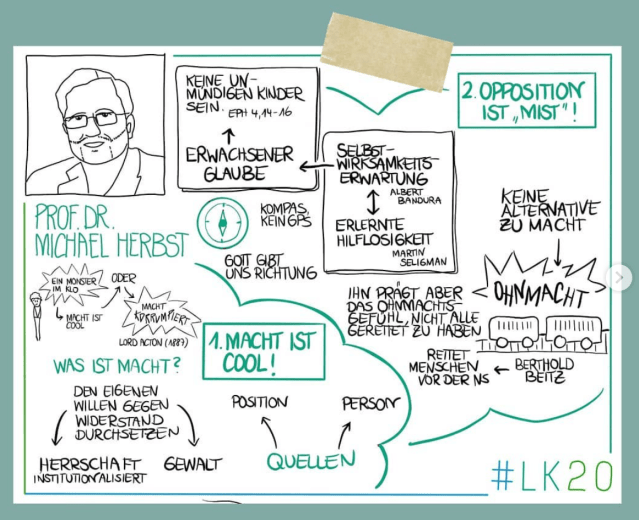 PROF. DR.
MICHAEL HERBST
KEINE UN-
MÜNDIGEN KINDER
SEIN. EPH 4,14-16
ERWACHSENER
GLAUBE
SELBST-
WIRKSAMKEITS-
ERWARTUNG
ALBERT
BANDURA
ERLERNTE
HILFLOSIGKEIT
MARTIN
SELIGMAN
KOMPAS,
KEIN GPS
GOTT GIBT
UNS RICHTUNG
EIN MONSTER
IM KLO
MACHT IST
COOL
ODER
MACHT
KORRUMPIERT
LORD ACTON (1887)
WAS IST MACHT?
DEN EIGENEN
WILLEN GEGEN
WIDERSTAND
DURCHSETZEN
HERRSCHAFT
INSTITUTIONALISIERT
GEWALT
1. MACHT IST
COOL!
POSITION
PERSON
QUELLEN
2. OPPOSITION
IST „MIST"!
KEINE
ALTERNATIVE
ZU MACHT
OHNMACHT
BERTHOLD
BEITZ
RETTET
MENSCHEN
VOR DER NS
IHN PRÄGT ABER
DAS OHNMACHTS-
GEFÜHL, NICHT ALLE
GERETTET ZU HABEN
#LK20